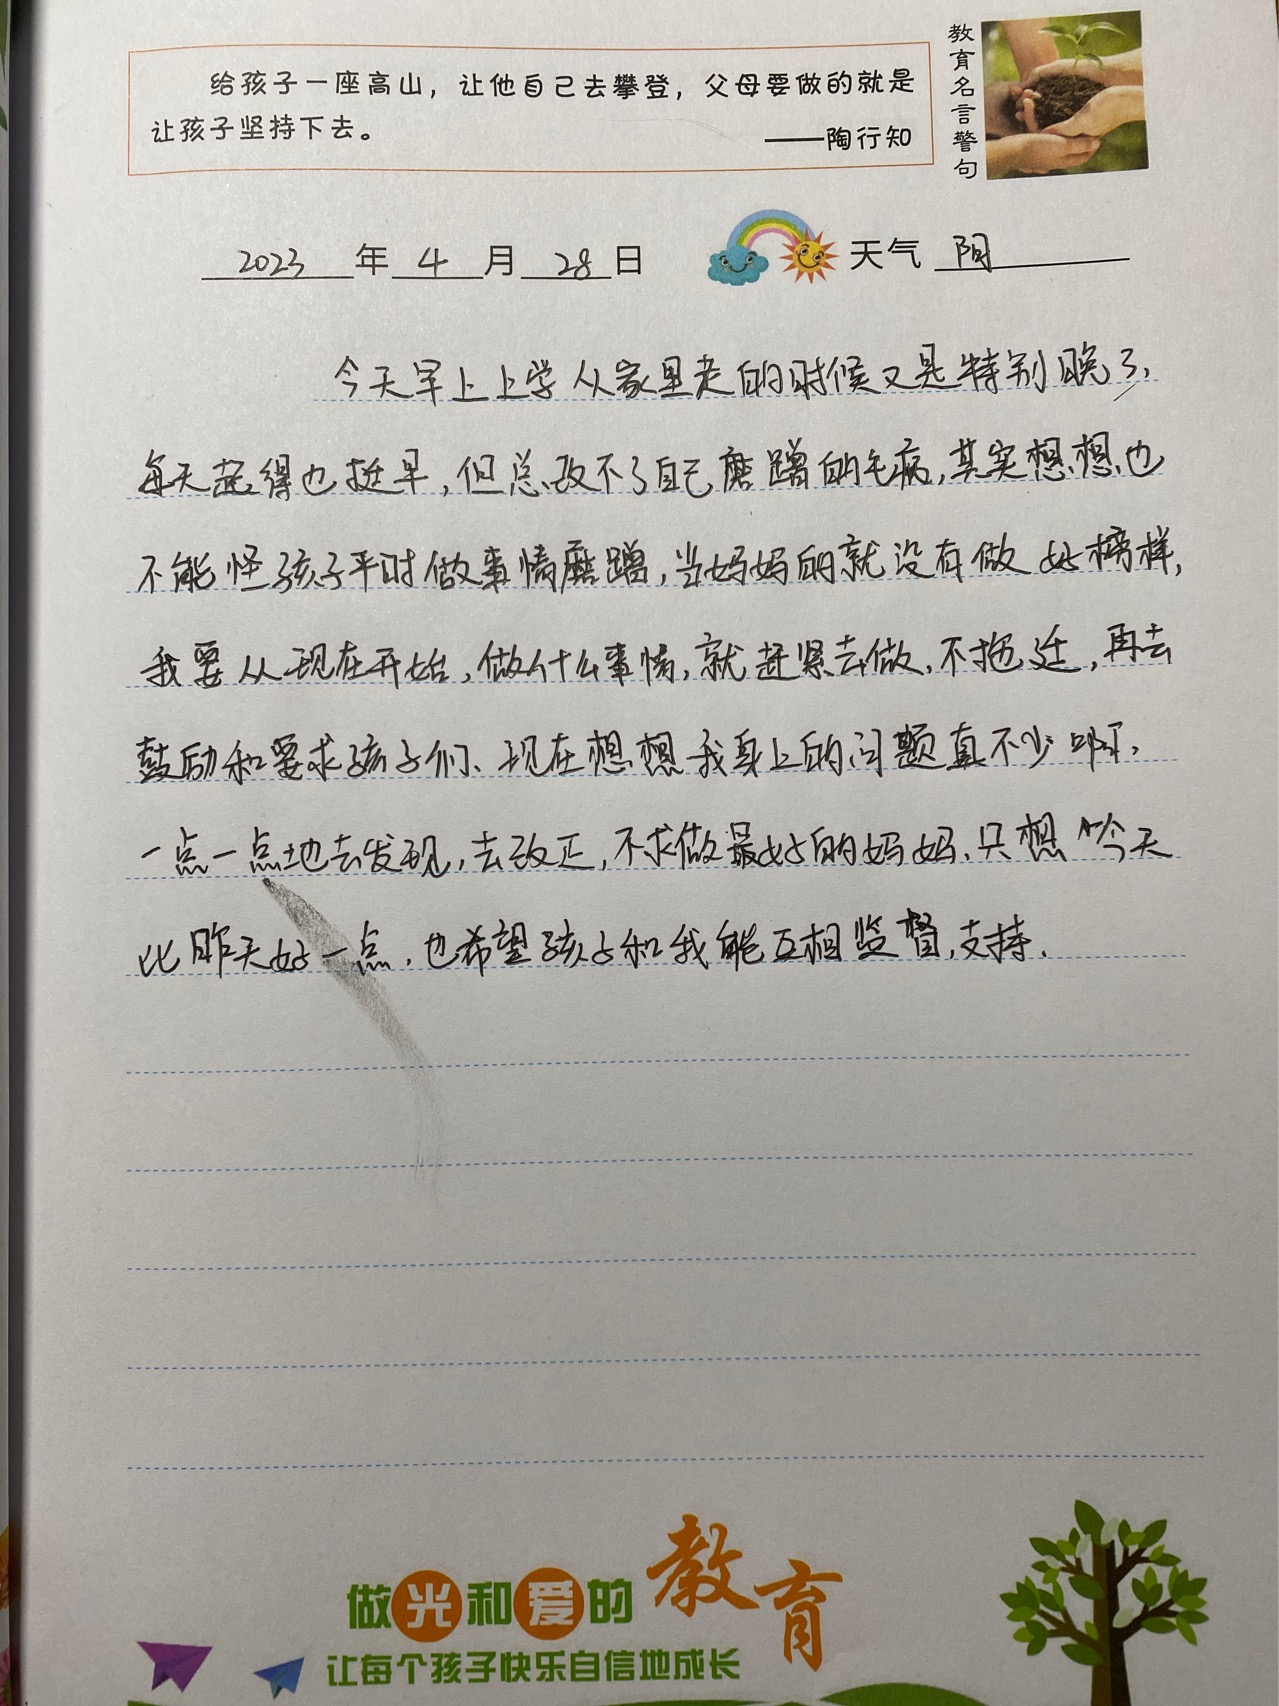 给孩子一座高山，让他自己去攀登，父母要做的就是
让孩子坚持下去。
——陶行知
教育名言警句
2023年4月28日 天气 阴
今天早上上学从家里走的时候又是特别晚了,
每天起得也挺早,但总改不了自己磨蹭的毛病,其实想想也
不能怪孩子平时做事情磨蹭,当妈妈的就没有做好榜样,
我要从现在开始,做什么事情,就赶紧去做,不拖延,再去
鼓励和要求孩子们、现在想想我身上的问题真不少啊,
一点一点地去发现,去改正,不求做最好的妈妈,只想今天
比昨天好一点,也希望孩子和我能互相监督,支持.
做光和爱的教育
让每个孩子快乐自信地成长